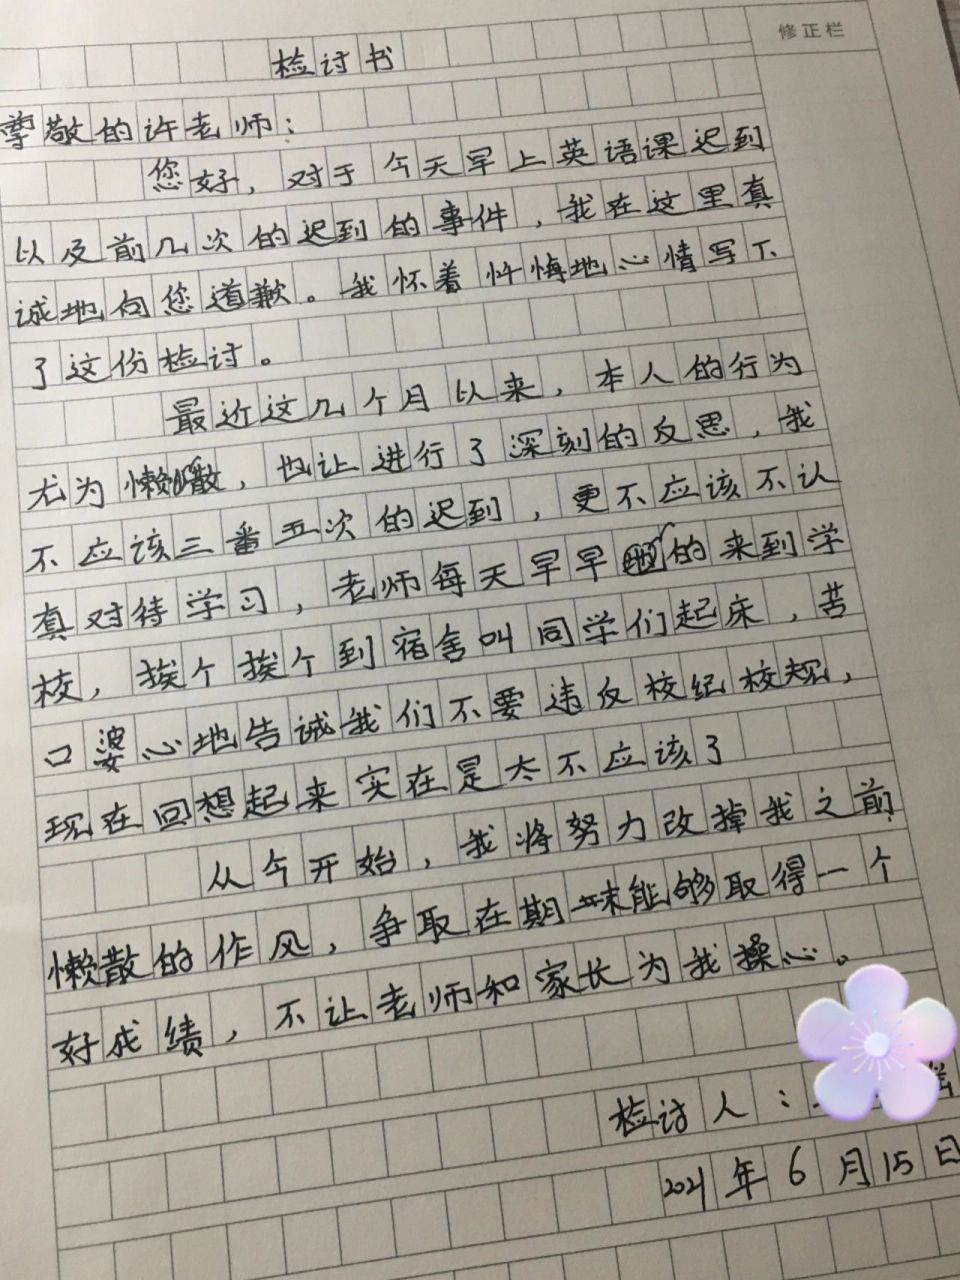 修正栏
检讨书
尊敬的许老师：
您好，对于今天早上英语课迟到
以及前几次的迟到的事件，我在这里真
诚地向您道歉。我怀着忏悔地心情写下
了这份检讨。
最近这几个月以来，本人的行为
尤为懒散，也让进行了深刻的反思，我
不应该三番五次的迟到，更不应该不认
真对待学习，老师每天早早的来到学
校，挨个挨个到宿舍叫同学们起床，苦
口婆心地告诫我们不要违反校纪校规，
现在回想起来实在是太不应该了
从今开始，我将努力改掉我之前
懒散的作风，争取在期末能够取得一个
好成绩，不让老师和家长为我操心。
检讨人：
2021年6月15日